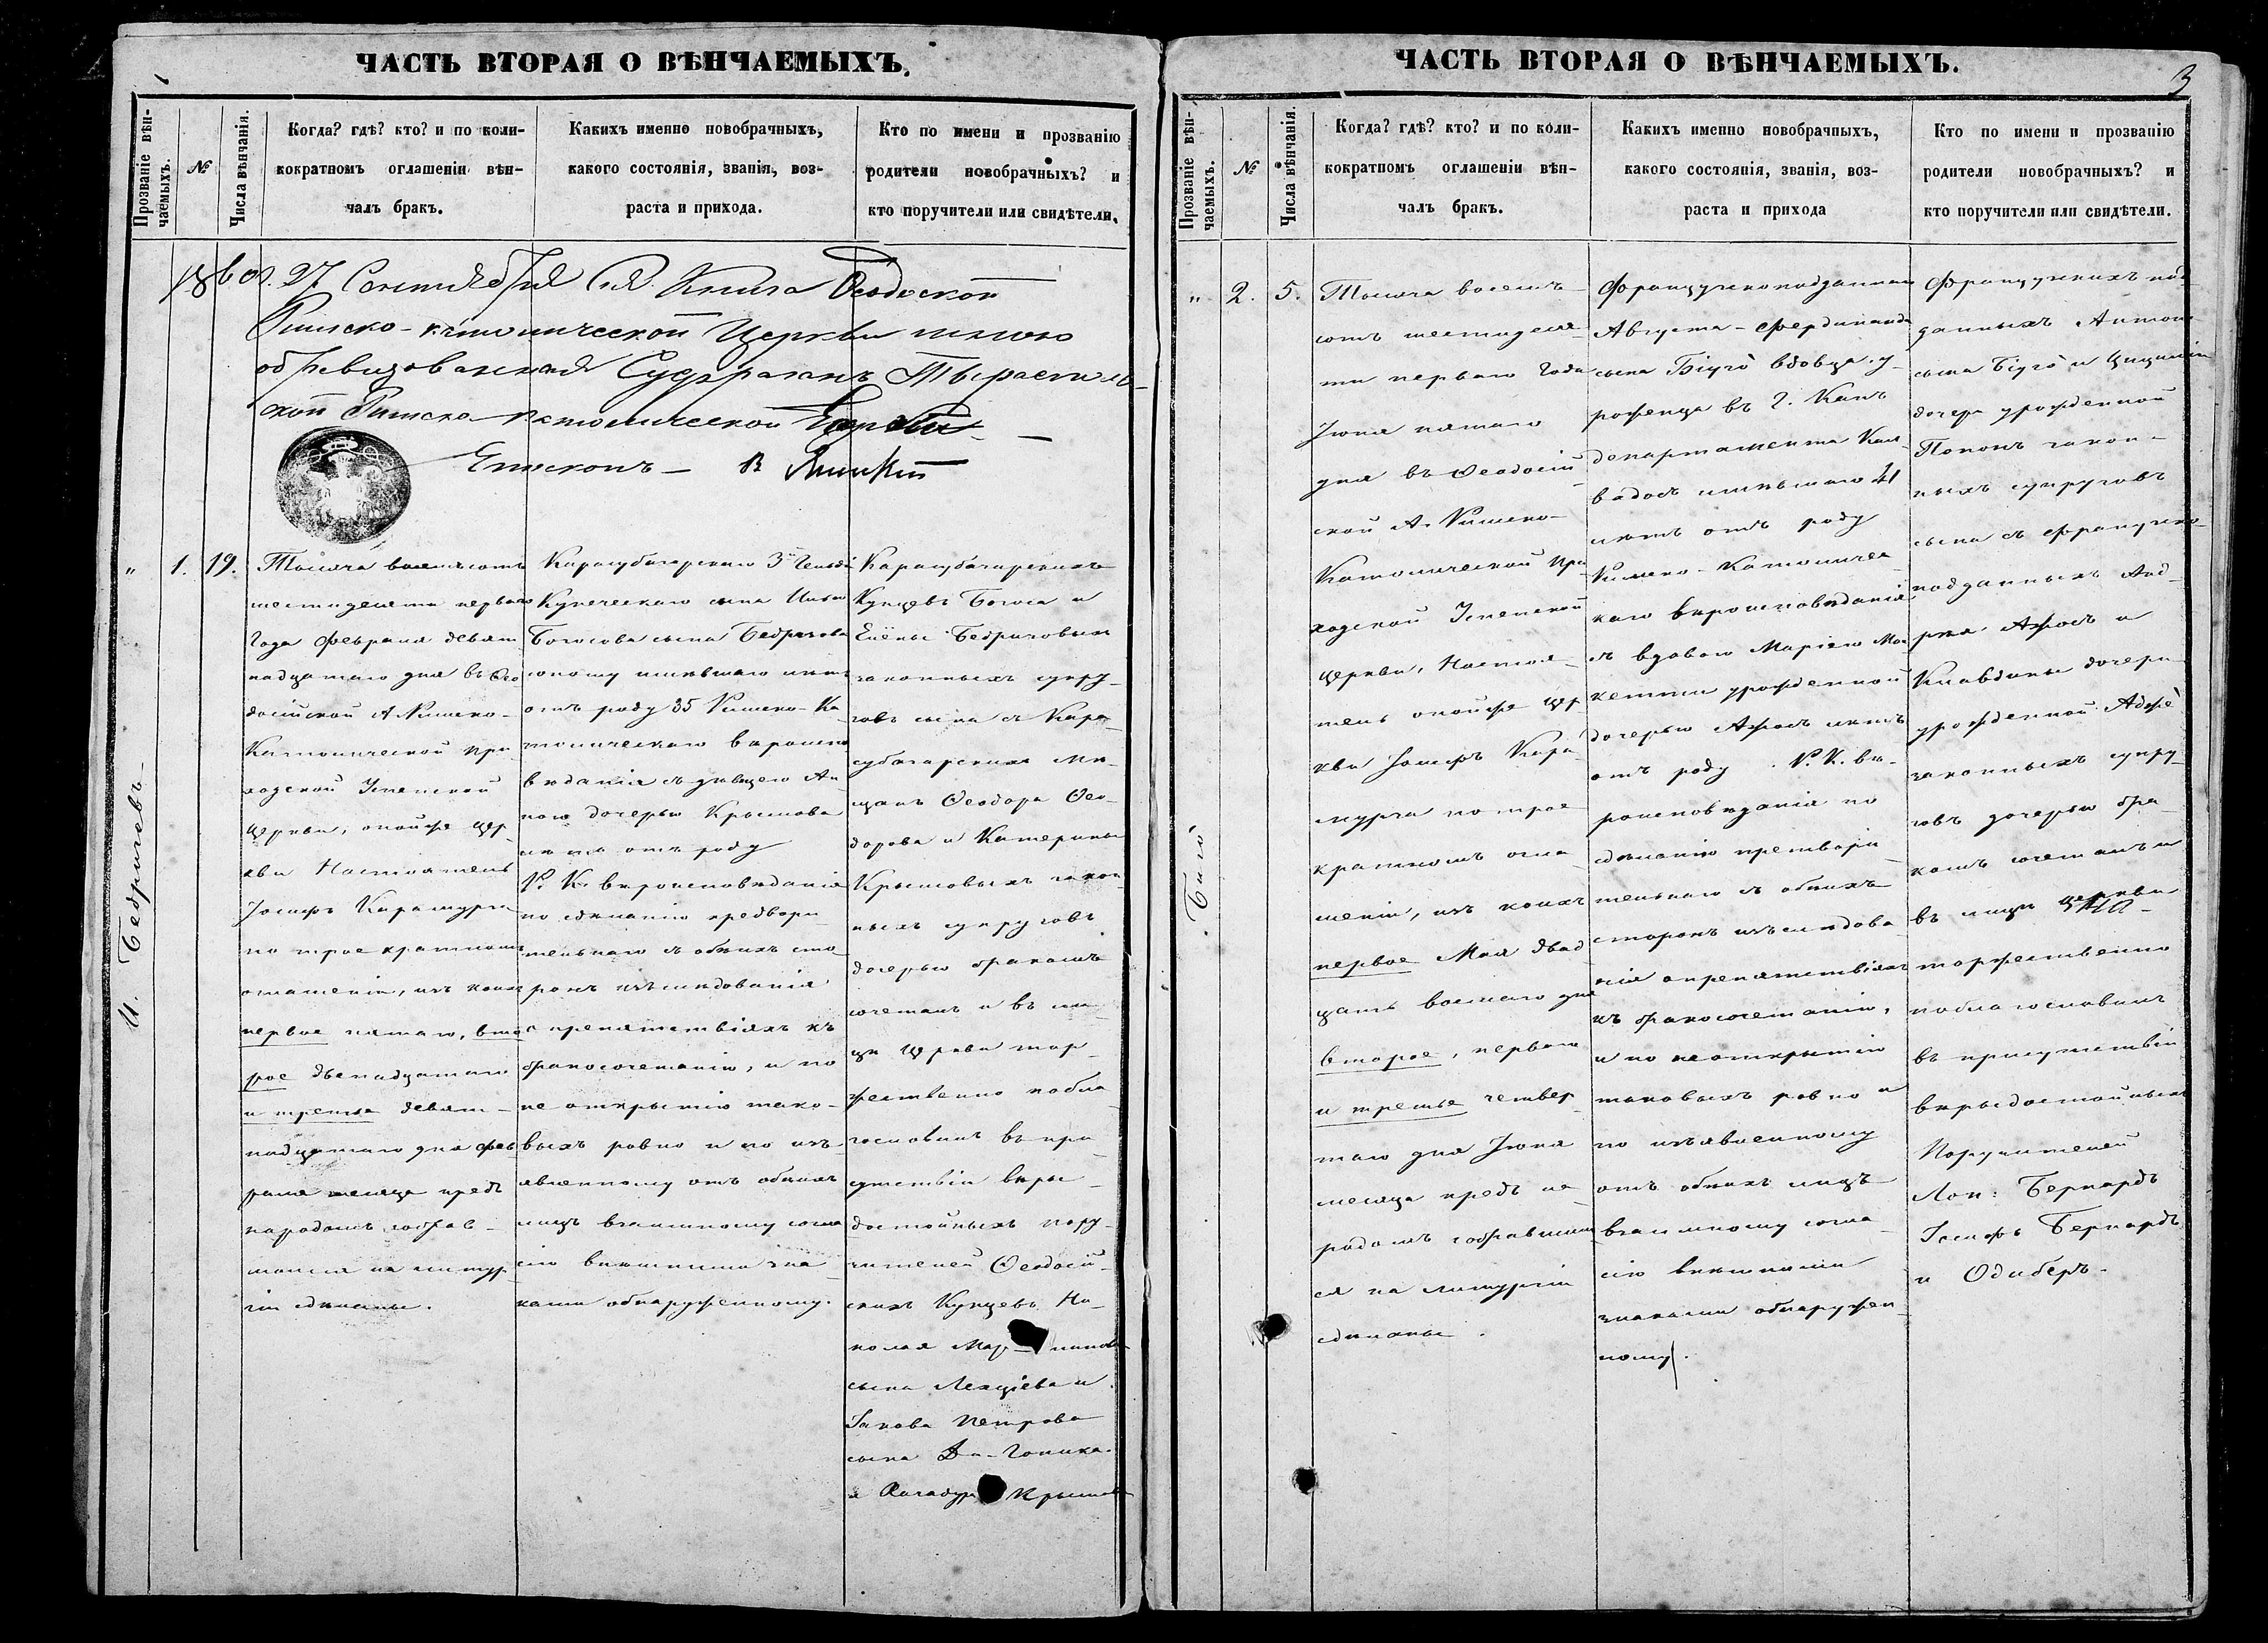 ЧАСТЬ ВТОРАЯ О ВѢНЧАЕМЫХЪ.
Прозваніе вѣн-
чаемыхъ.
№
Числа вѣнчанія.
Когда? гдѣ? кто? и по коли-
кократномъ оглашеніи вѣн-
чалъ бракъ.
Какихъ именно новобрачныхъ,
какого состоянія, званія, воз-
раста и прихода.
Кто по имени и прозванію
родители новобрачныхъ? и
кто поручители или свидѣтели.
1860. 27 Сентября сія Книга Ѳеодоской
Римско-католической Церкви мною
обревизованная Суффраганъ Тырасполь-
ской Римско-католической
Епископъ
И. Бедриговъ
"
1.
19.
Тысяча восемьсотъ
шестьдесятъ перваго
Года Февраля девят
надцатаго дня въ Ѳео
досійской А. Римско-
Католической При
ходской Успенской
Церкви, оной же Цер
кви Настоятель
Іосифъ Карамурза
по троекратномъ
оглашеніи, изъ коихъ
первое пятаго, вто
рое двенадцатаго
и третье девят-
надцатаго дня Фев
раля месяца предъ
народомъ собрав-
шимся на литур
гіи сдѣланы.
Карасубазарскаго 3й Гильдіи
Купеческаго сына
Богосова сына Бедригова
юношу имѣвшаго лѣтъ
отъ роду 35 Римско-Ка
толическаго вѣроиспо
вѣданія съ дѣвицею Ан
ною дочерью Крымова
лѣтъ отъ роду
Р. К. вѣроисповѣданія
по сдѣланію предвари
тельнаго съ обѣихъ сто
ронъ изъслѣдованія
о препятствіяхъ къ
бракосочетанію, и по
не открытію тако-
выхъ ровно и по изъ
явленному отъ обѣихъ
лицъ взаимному согла
сію внѣшними зна
ками обнаруженному.
Карасубазарскихъ
Купцевъ Богоса и
Елены Бедриговыхъ
законныхъ супру-
говъ сына съ Кара
субазарскихъ мѣ-
щанъ Ѳеодора Ѳео-
дорова и Катерины
Крымовыхъ закон
ныхъ супруговъ
дочерью бракомъ
сочеталъ и въ ли-
цѣ Церкви тор-
жественно побла
гословилъ въ при
сутствіи вѣры-
достойныхъ пору-
чителей Ѳеодосій-
скихъ Купцевъ Ни-
колая
сына Лехціева и
Якова Петрова
сына
и Крымова
ЧАСТЬ ВТОРАЯ О ВѢНЧАЕМЫХЪ.
3
Прозваніе вѣн-
чаемыхъ.
№
Числа вѣнчанія.
Когда? гдѣ? кто? и по коли-
кократномъ оглашеніи вѣн-
чалъ бракъ.
Какихъ именно новобрачныхъ,
какого состоянія, званія, воз-
раста и прихода
Кто по имени и прозванію
родители новобрачныхъ? и
кто поручители или свидѣтели.
Бигò
"
2.
5.
Тысяча восемь-
сотъ шестьдеся-
ти перваго Года
Іюня пятаго
дня въ Ѳеодосій
ской А. Римско-
Католической При
ходской Успенской
Церкви, Настоя-
тель оной же Цер
кви Іосифъ Кара
мурза по трое
кратномъ огла
шеніи, изъ коихъ
первое Мая двад
цать восьмаго дня
второе, перваго
и третье четвер
таго дня Іюня
месяца предъ на
родомъ собравшим
ся на литургіи
сдѣланы.
Французскоподданнаго
Августа-Фердинанда
сына Бігуò вдовца у-
роженца въ Г. Канъ
департамента Каль
вадосъ имѣвшаго 41
лѣтъ отъ роду
Римско-Католичес
каго вѣроисповѣданія
съ вдовою Маріею
урожденной
дочерью лѣтъ
отъ роду Р. К. вѣ-
роисповѣданія по
сдѣланію предвари
тельнаго съ обѣихъ
сторонъ изъслѣдова
нія о препятствіяхъ
къ бракосочетанію,
и по не открытію
таковыхъ ровно и
по изъявленному
отъ обѣихъ лицъ
взаимному согла
сію внѣшними
знаками обнаружен
ному.
Французскихъ под
данныхъ Антона
сына Бігуò и
дочери урожденной
Попонъ закон-
ныхъ супруговъ
сына съ французско
подданныхъ Анд-
рея и
Клавдины дочери
урожденной
законныхъ супру-
говъ дочерью бра-
комъ сочеталъ и
въ лицѣ Церкви
торжественно
поблагословилъ
въ присутствіи
вѣрыдостойныхъ
Поручителей
Бернардъ
Іосифъ Бернардъ
и Одиберъ.